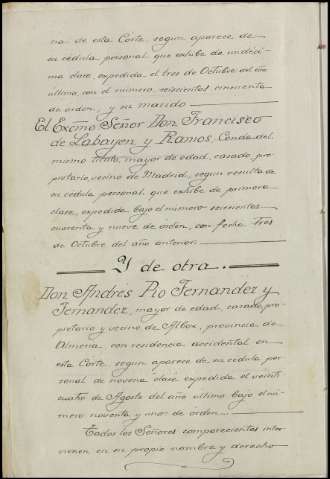 na de esta Corte, segun aparece de
su cédula personal que exhibe de undéci-
ma clase, expedida el tres de Octubre del año
último, con el numero seiscientos cincuenta
de orden, y su marido
El Excmo Señor Don Francisco
de Labayen y Ramos, Conde del
mismo titulo, mayor de edad, casado, pro-
pietario, vecino de Madrid, segun resulta de
su cédula personal, que exhibe de primera
clase, expedida bajo el número seiscientos
cuarenta y nueve de orden, con fecha Tres
de Octubre del año anterior.
Y de otra.
Don Andrés Pio Fernandez y
Fernandez, mayor de edad, casado, pro-
pietario y vecino de Albox, provincia de
Almeria, con residencia accidental en
esta Corte, segun aparece de su cédula per-
sonal de novena clase expedida el veinti-
cuatro de Agosto del año ultimo bajo el nú-
mero noventa y uno de orden.
Todos los Señores comparecientes inter-
vienen en su propio nombre y derecho